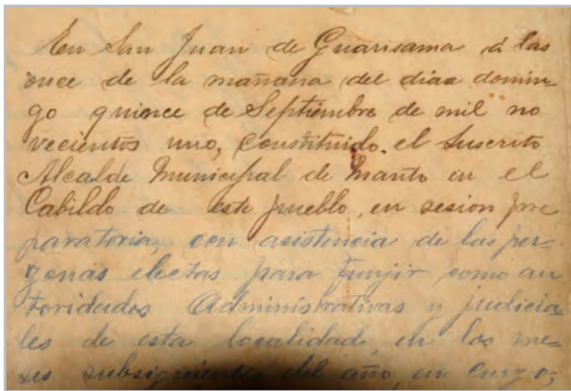 En San Juan de Guarisama á las
once de la mañana del dia domin-
go quince de Septiembre de mil no
vecientos uno, Constituido. el Suscrito
Alcalde Municipal de Manto en el
Cabildo de este pueblo, en sesion pre
paratoria, con asistencia de las per-
zonas electas para funjir como au
toridades Administrativas y judicia
les de esta localidad, en los me-
ses subsiguientes del año en curzo;